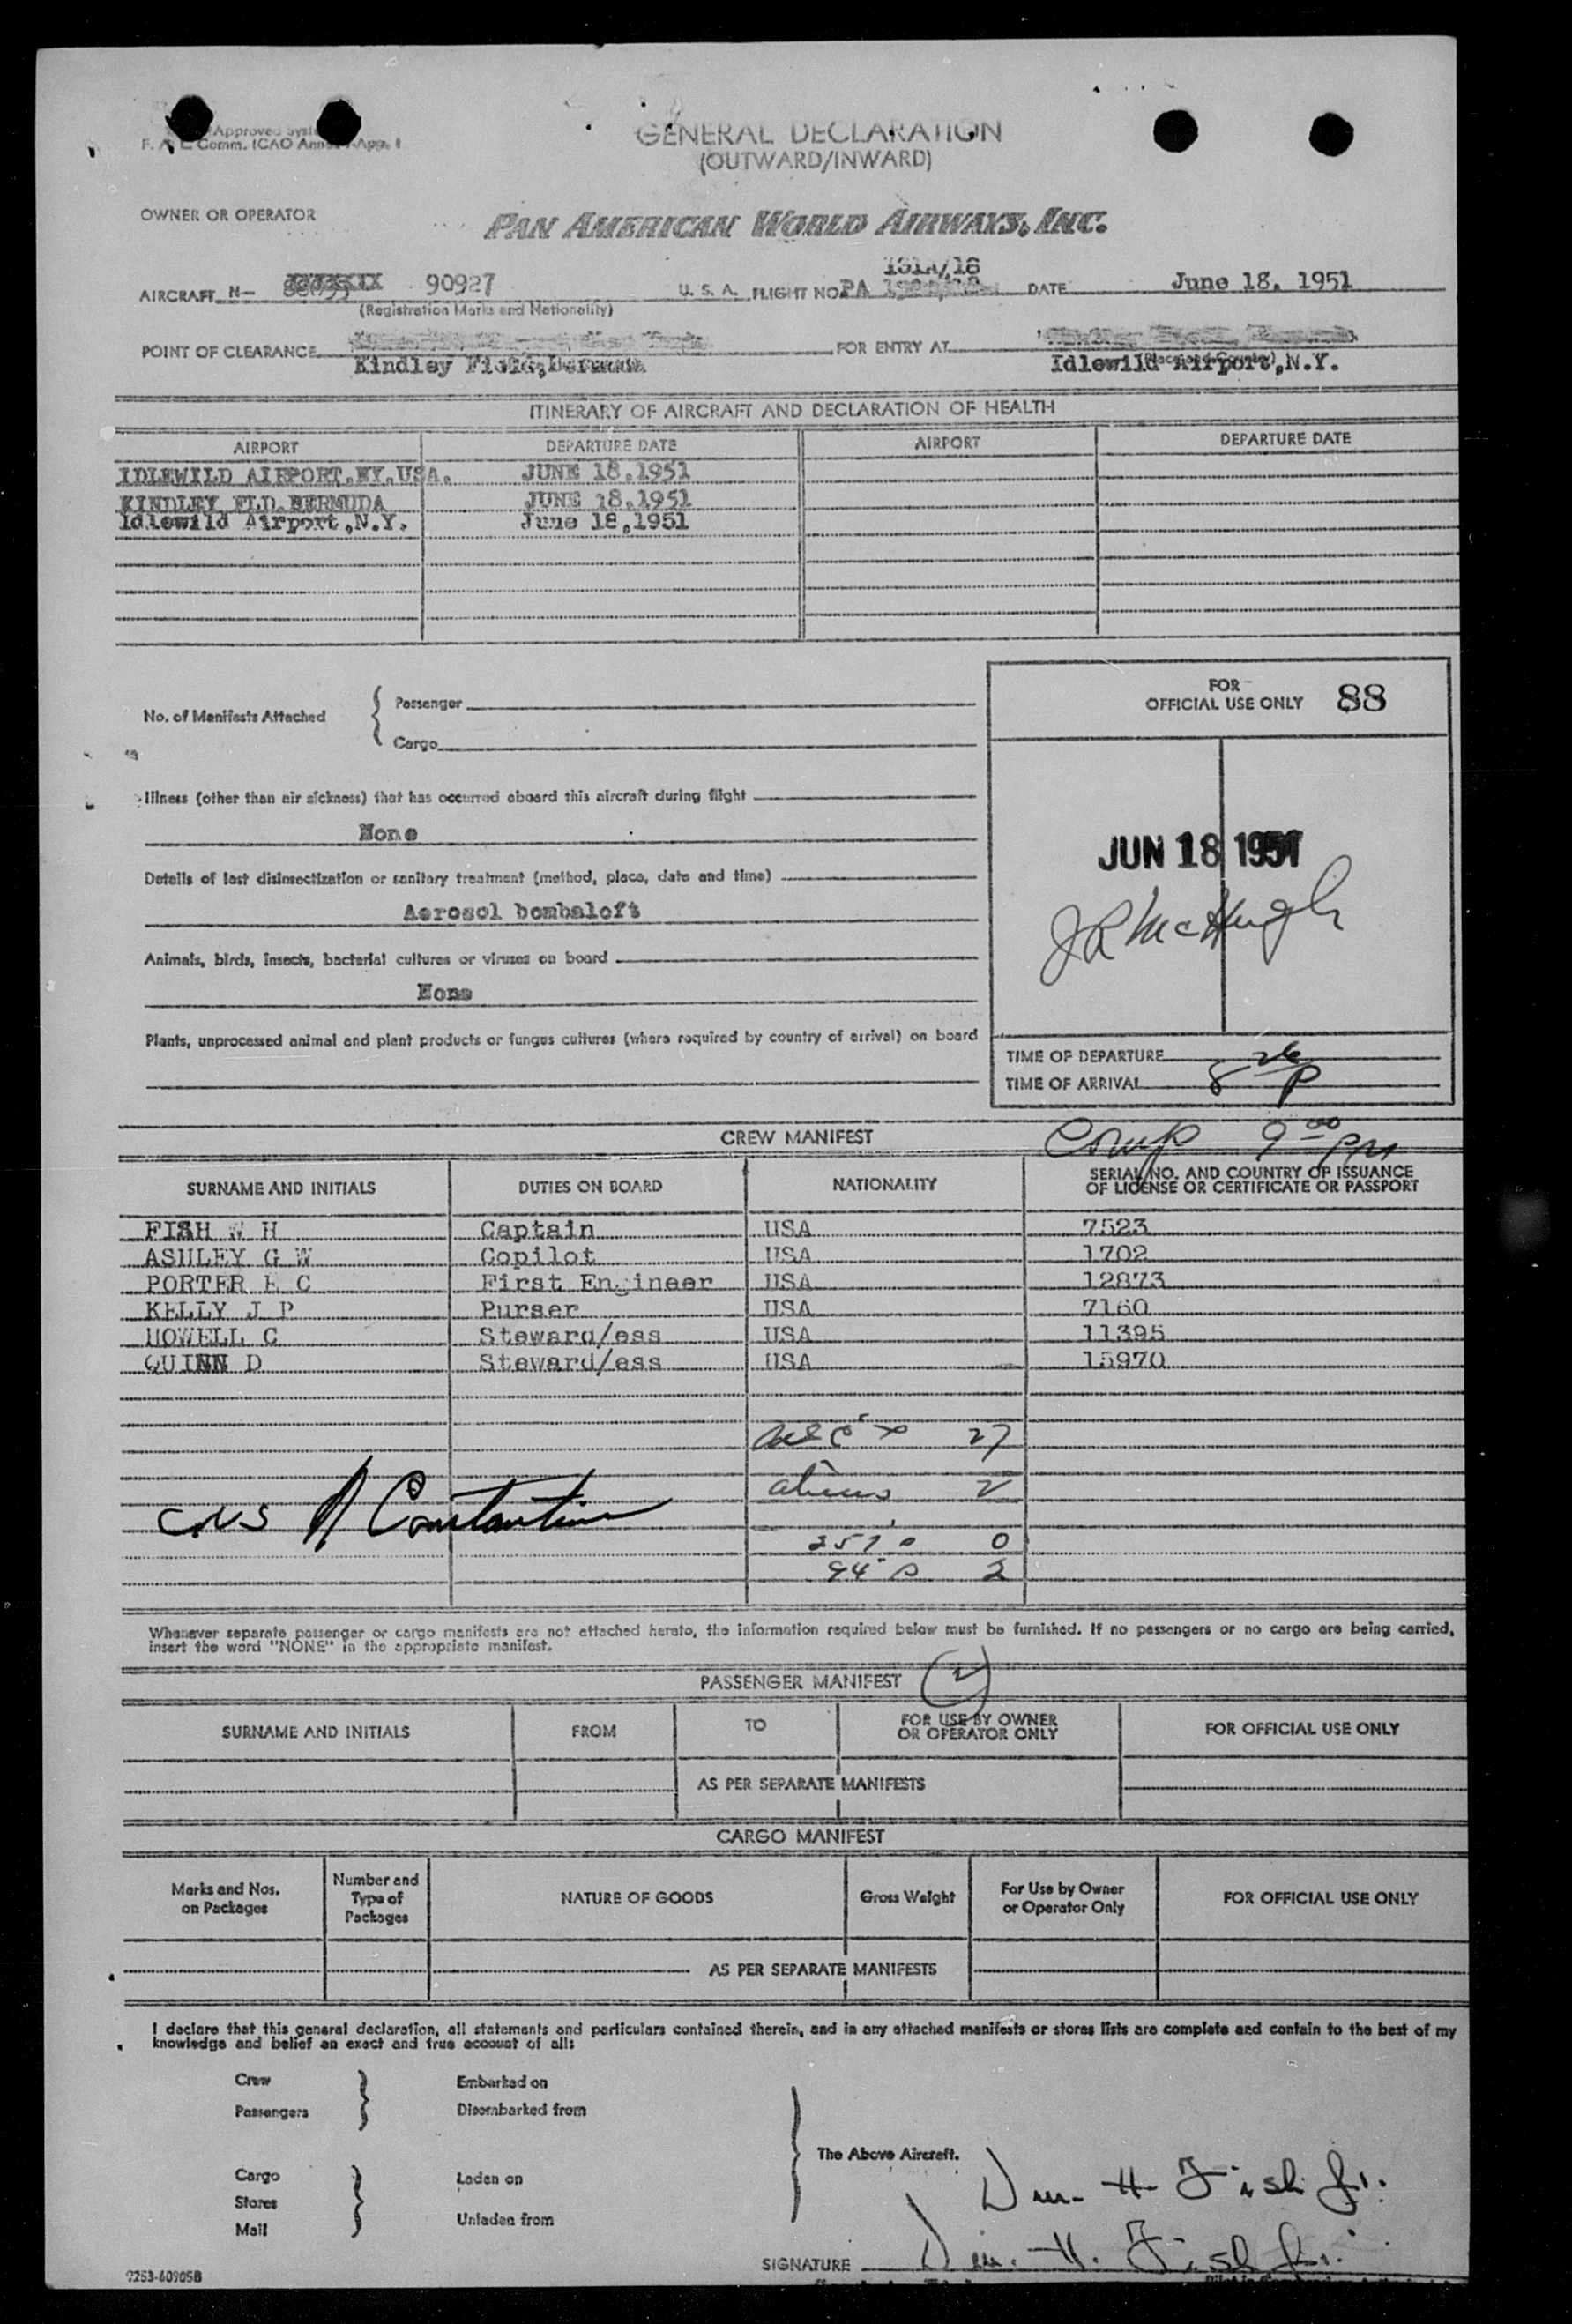 Approved Syst
F. A. L. Comm. ICAO Annex App. I
GENERAL DECLARATION
(OUTWARD/INWARD)
OWNER OR OPERATOR
PAN AMERICAN WORLD AIRWAYS, INC.
131A/18
AIRCRAFT N- 90927 U. S. A. FLIGHT NO. PA DATE June 18, 1951
(Registration Marks and Nationality)
POINT OF CLEARANCE FOR ENTRY AT
Kindley Field, Bermuda Idlewild Airport, N.Y.
(Place and Country)
ITINERARY OF AIRCRAFT AND DECLARATION OF HEALTH
AIRPORT DEPARTURE DATE AIRPORT DEPARTURE DATE
IDLEWILD AIRPORT.NY.USA. JUNE 18.1951
KINDLEY FLD.BERMUDA JUNE 18.1951
Idlewild Airport,N.Y. June 18,1951
FOR
OFFICIAL USE ONLY 88
No. of Manifests Attached
Passenger
Cargo
Illness (other than air sickness) that has occurred aboard this aircraft during flight
None
JUN 18 1951
Details of last disinsectization or sanitary treatment (method, place, date and time)
Aerosol bombaloft
J R McHugh
Animals, birds, insects, bacterial cultures or viruses on board
None
Plants, unprocessed animal and plant products or fungus cultures (where required by country of arrival) on board
TIME OF DEPARTURE
TIME OF ARRIVAL 8 26 P
CREW MANIFEST Comp 9 00 PM
SURNAME AND INITIALS DUTIES ON BOARD NATIONALITY SERIAL NO. AND COUNTRY OF ISSUANCE
OF LICENSE OR CERTIFICATE OR PASSPORT
FISH W H Captain USA 7523
ASHLEY G W Copilot USA 1702
PORTER E C First Engineer USA 12873
KELLY J P Purser USA 7160
HOWELL C Steward/ess USA 11395
QUINN D Steward/ess USA 15970
27
aliens 2
CNS A Constantine
257 0
94 2
Whenever separate passenger or cargo manifests are not attached hereto, the information required below must be furnished. If no passengers or no cargo are being carried,
insert the word "NONE" in the appropriate manifest.
PASSENGER MANIFEST 2
SURNAME AND INITIALS FROM TO FOR USE BY OWNER
OR OPERATOR ONLY FOR OFFICIAL USE ONLY
AS PER SEPARATE MANIFESTS
CARGO MANIFEST
Marks and Nos.
on Packages
Number and
Type of
Packages
NATURE OF GOODS
Gross Weight
For Use by Owner
or Operator Only
FOR OFFICIAL USE ONLY
AS PER SEPARATE MANIFESTS
I declare that this general declaration, all statements and particulars contained therein, and in any attached manifests or stores lists are complete and contain to the best of my
knowledge and belief an exact and true account of all:
Crew Embarked on
Passengers Disembarked from
The Above Aircraft.
Cargo Laden on
Stores
Mail Unladen from
Wm. H. Fish Jr.
SIGNATURE Wm. H. Fish Jr.
9253-60905B